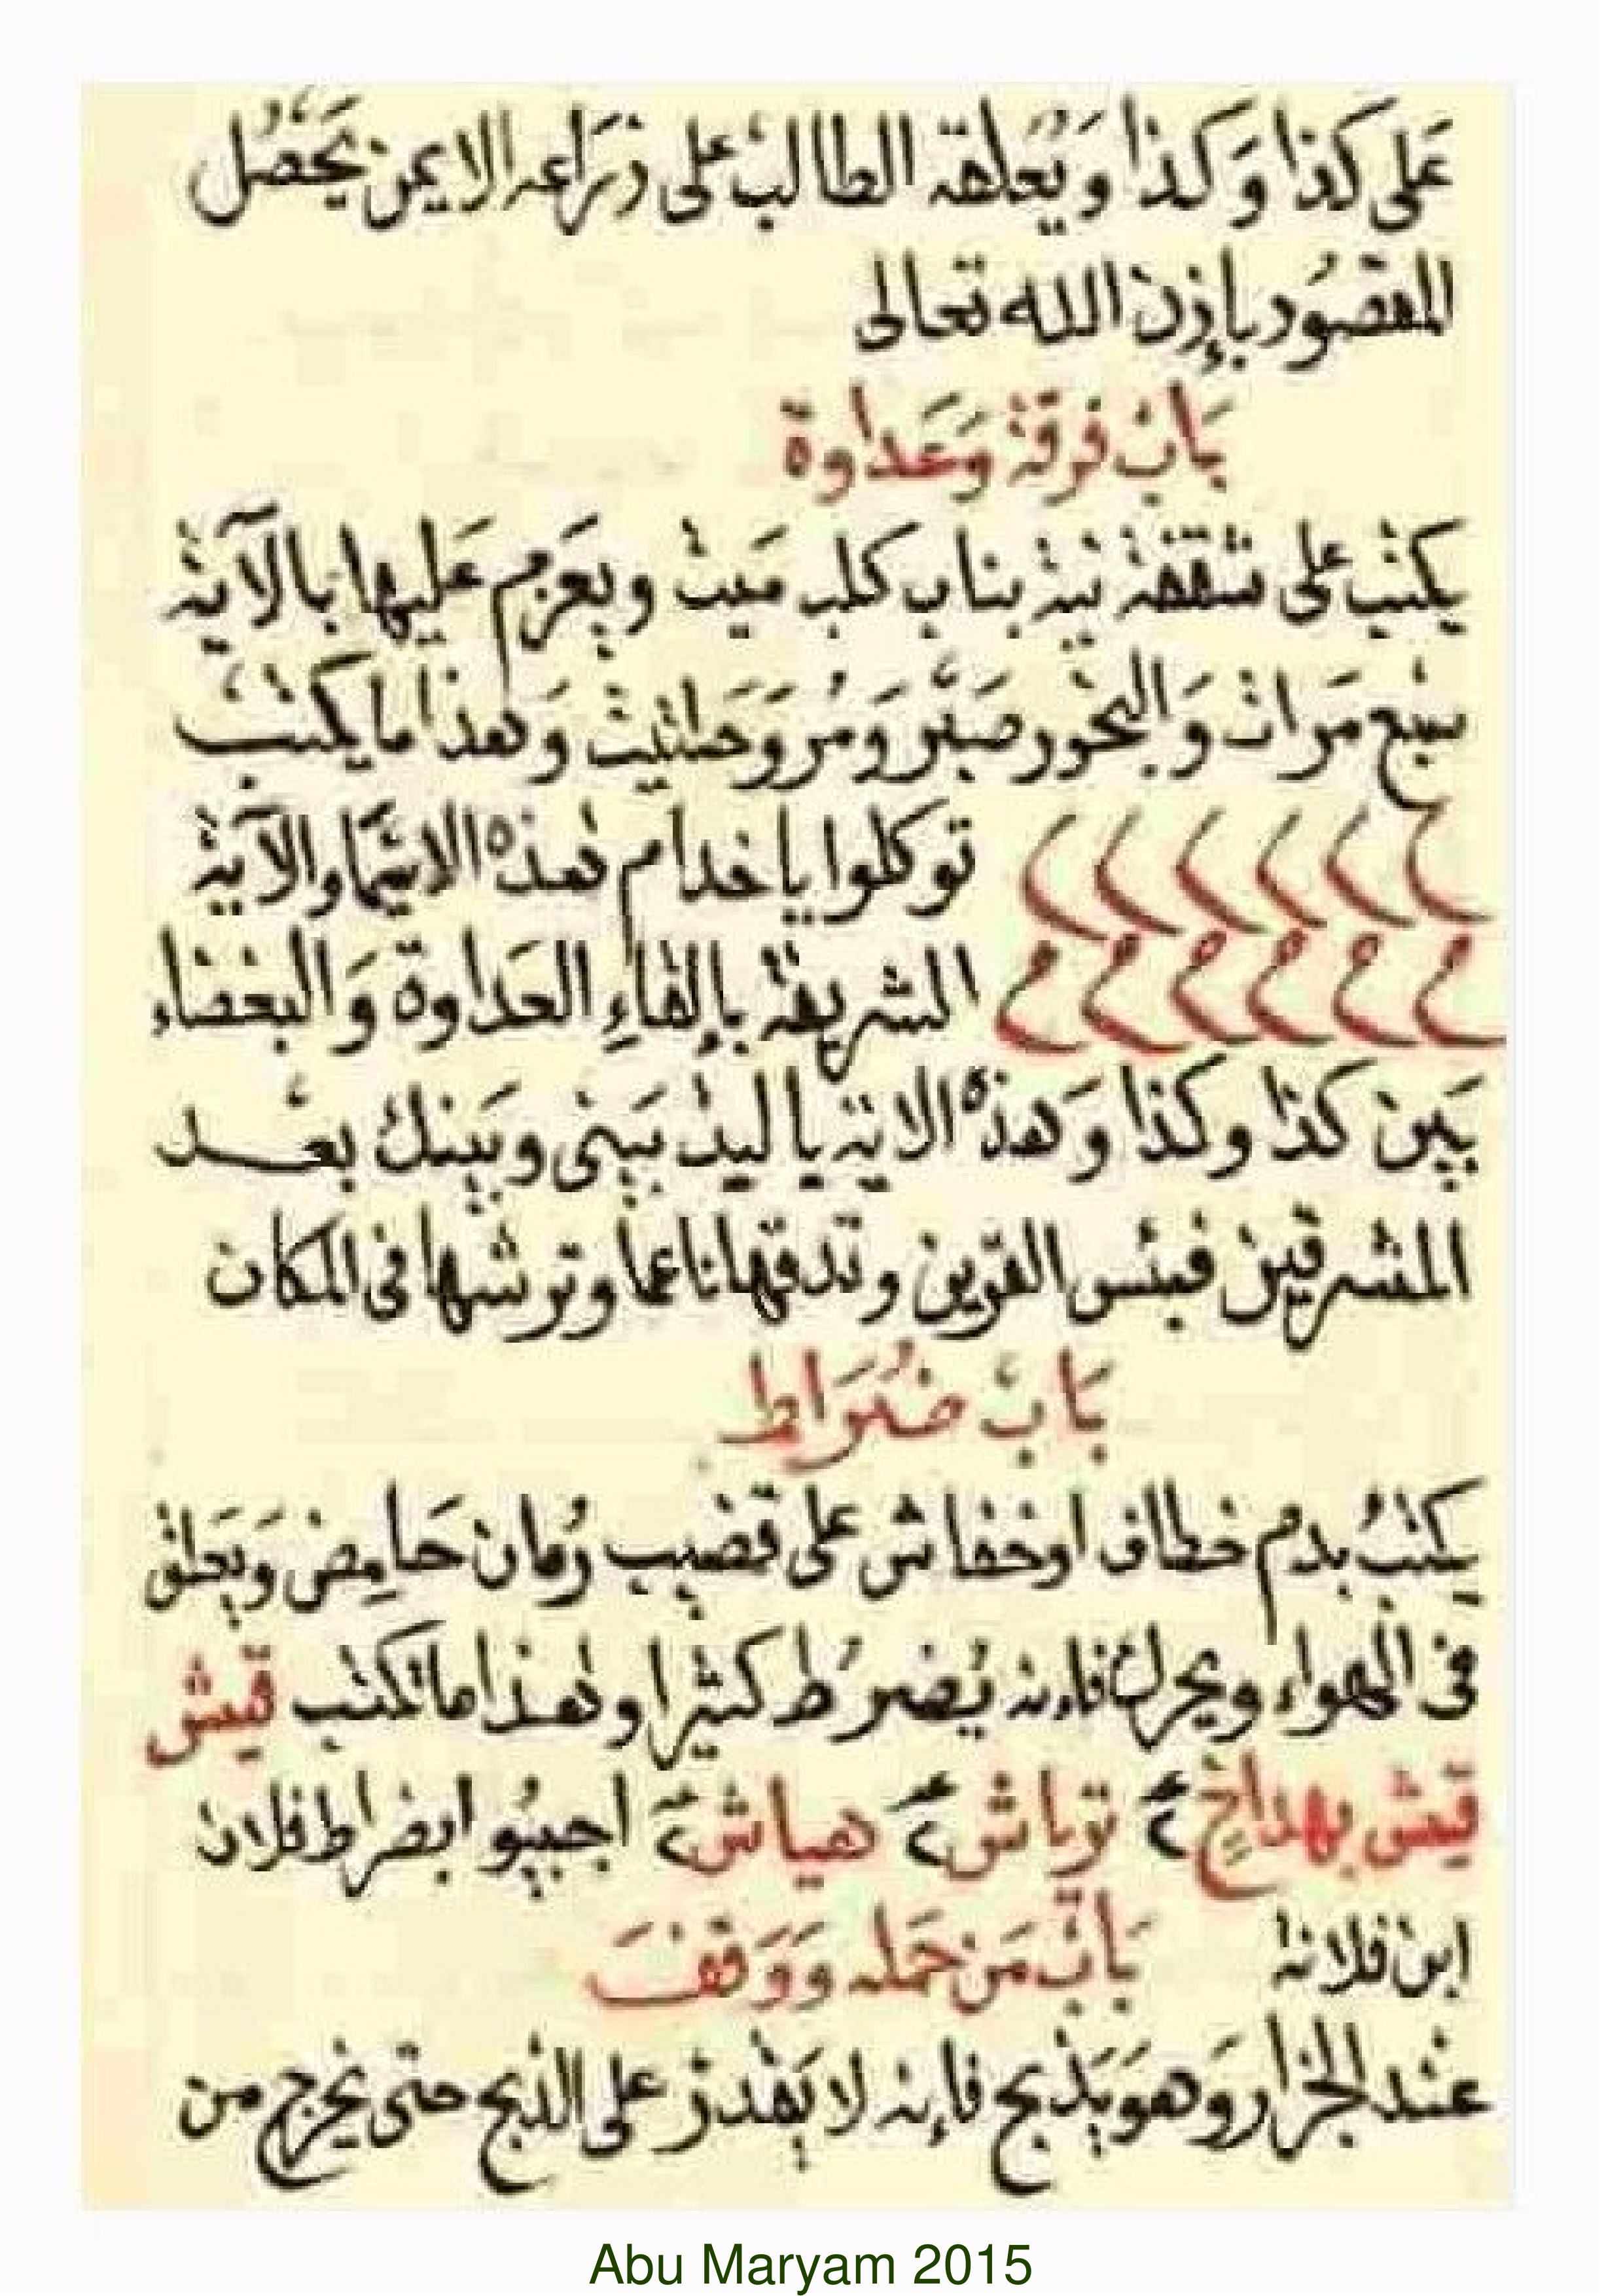 عَلى كَذا وَكَذا وَيُعلقه الطالب على ذراعه الايمن يَحْصُل
المقصُود بإذن الله تعالى
بَابْ فرقة وَعَداوة
يكتب على شقفة نية بناب كلب مَيت ويعَزم عَليها بالآية
سبع مَرات وَالبخور صَبْر وَمُر وَحلتيت وَهذا ما يكتب
توكلوا يا خدام هذه الاسما والآية
الشريفة بإلقاءِ العَداوة وَالبغضاء
بَين كذا وكذا وَهذه الاية يا ليت بَيني وبَينك بعْد
المشرقين فبئس القرين وتدقها ناعما وترشها فى المكان
بَابْ ضُرَاط
يكتبُ بدم خطاف او خفاش على قضيب رُمان حَامِض وَيعَلق
فى الهواء ويحرك فانه يُضرط كثيرا وهذا ما تكتب قيش
قيش بهداخ ٢ توباش ٢ هياش ٢ اجيبُو ابضراط فلان
ابن فلانه بَابْ مَن حَمله وَوَقفَ
عند الجزار وَهو يَذبح فإنه لا يَقدر على الذبح حتى يخرج من
Abu Maryam 2015